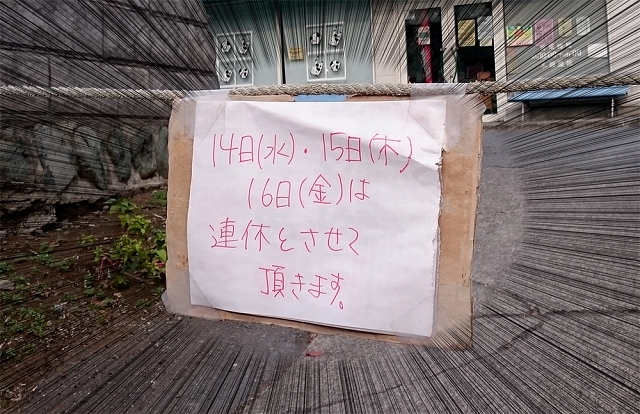 14日(水)・15日(木)
16日(金)は
連休とさせて
頂きます。